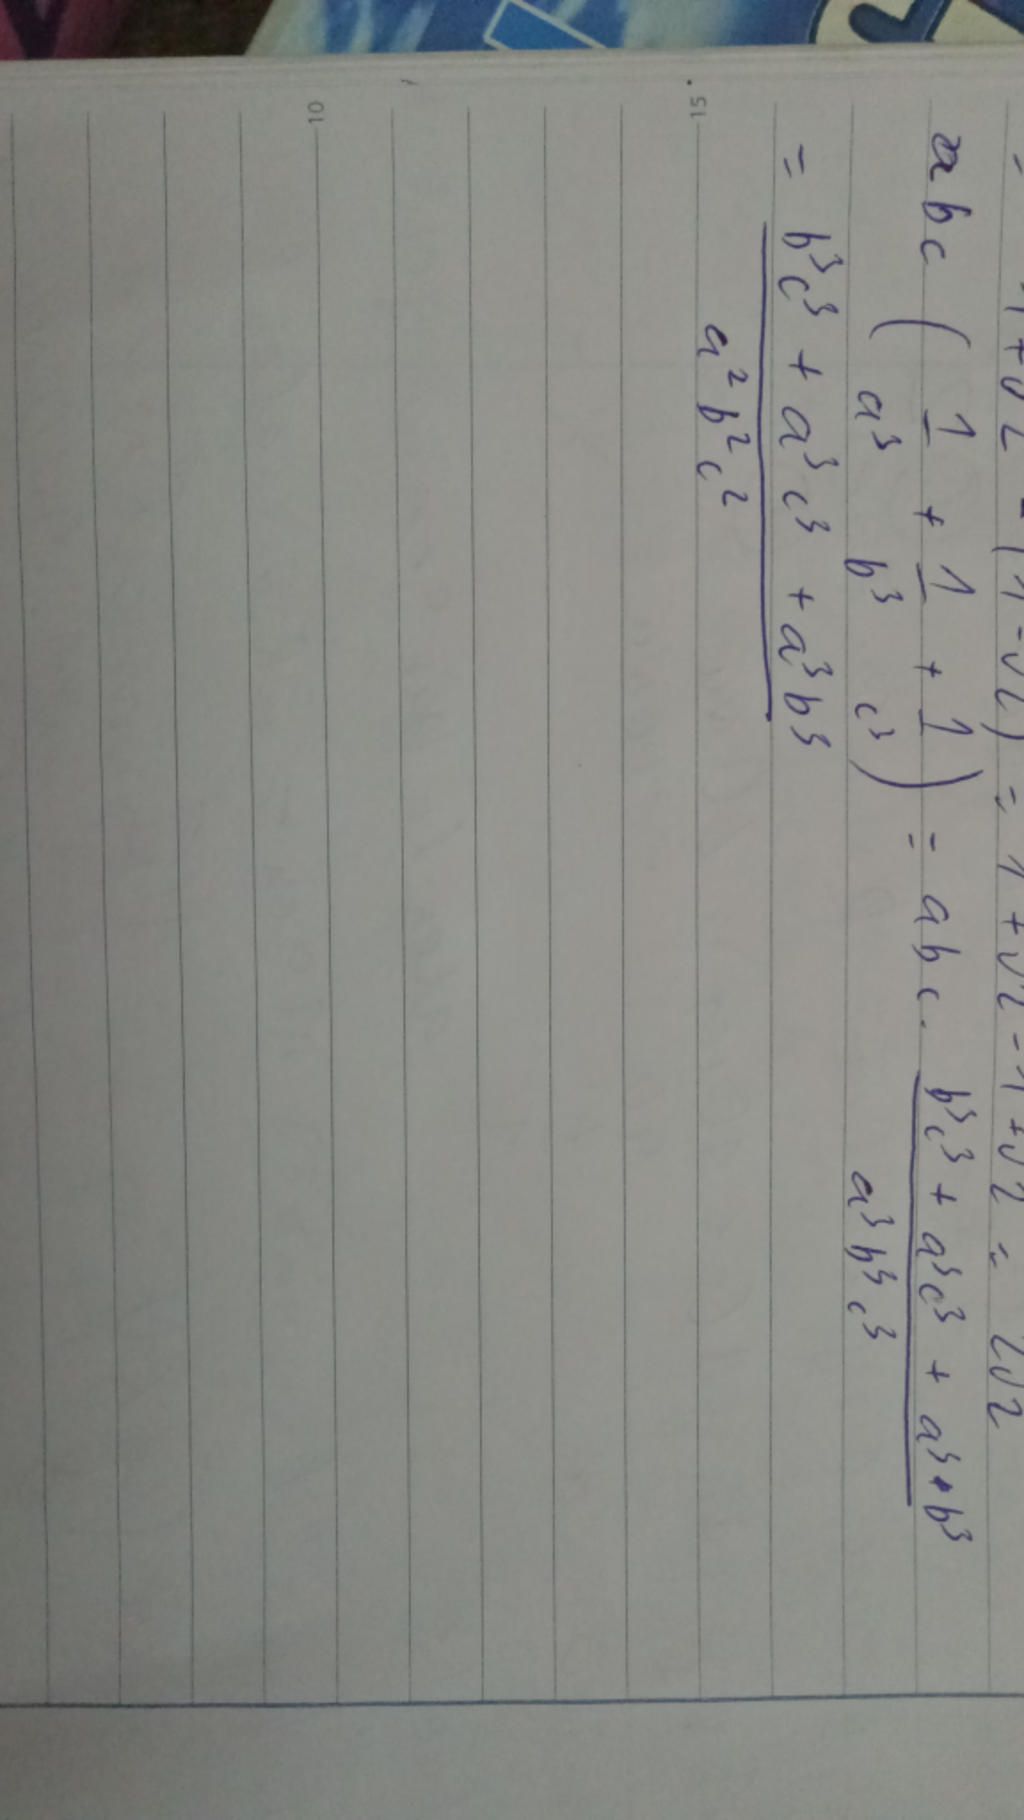 = 1+√2 - (1-√2) = 1+√2-1+√2 = 2√2
abc ( 1/a³ + 1/b³ + 1/c³ ) = abc. (b³c³ + a³c³ + a³•b³)/(a³b³c³)
= (b³c³ + a³c³ + a³b³)/(a²b²c²)
15
10